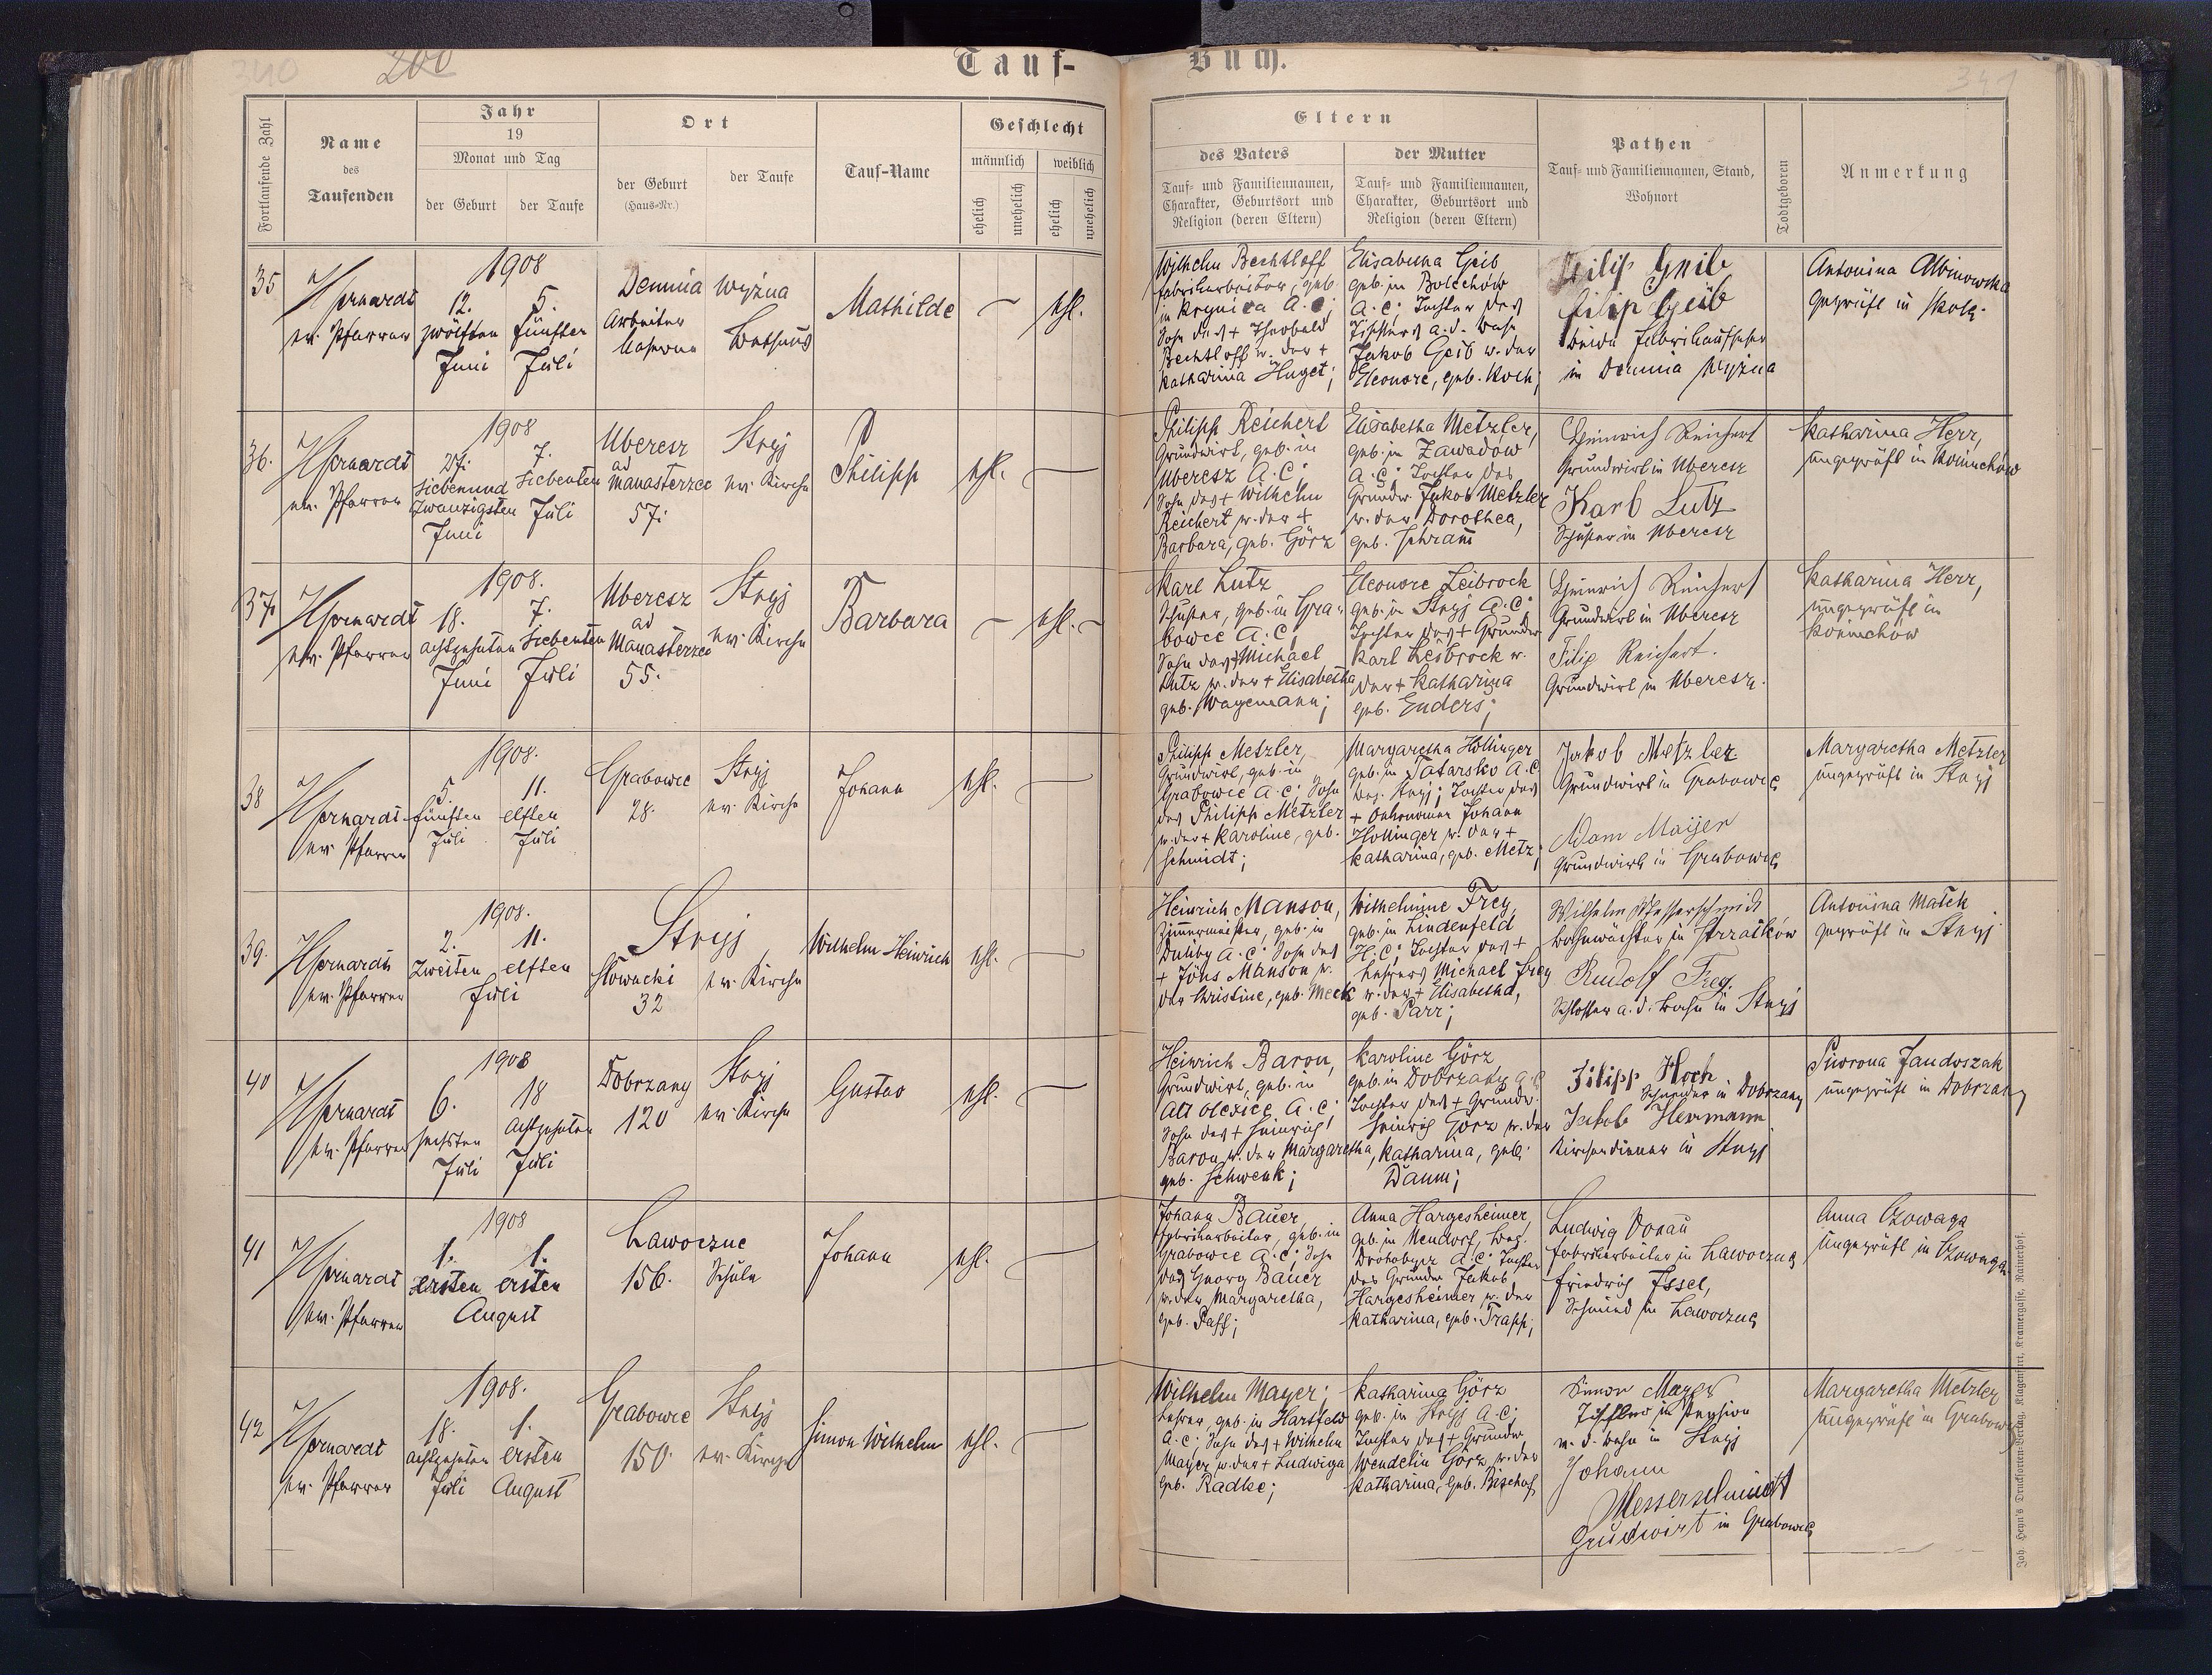 340
200
Tauf-
Buch.
341
Fortlaufende Zahl
Name
des
Taufenden
Jahr
19
Monat und Tag
der Geburt
der Taufe
Ort
der Geburt
(Haus-Nr.)
der Taufe
Tauf-Name
Geschlecht
männlich
weiblich
ehelich
unehelich
ehelich
unehelich
Eltern
des Vaters
Tauf- und Familiennamen,
Charakter, Geburtsort und
Religion (deren Eltern)
der Mutter
Tauf- und Familiennamen,
Charakter, Geburtsort und
Religion (deren Eltern)
Pathen
Tauf- und Familiennamen, Stand,
Wohnort
Todtgeboren
Anmerkung
35
ev. Pfarrer
1908
12.
zwölften
Juni
5.
fünften
Juli
Demnia Wyżna
Arbeiter
Kaserne
Bethaus
Mathilde
—
ehl.
Wilhelm Bechtloff
Fabriksarbeiter, geb.
in Krynica A.C;
Sohn des + Theobald
Bechtloff u. der +
Katharina Huget;
Elisabetha Geib
geb. in Bolechów
A.C; Tochter des
Tischlers a.d. Bahn
Jakob Geib u. der
Eleonore, geb. Koch;
Filip Geib
filip Geib
beide Fabriksaufseher
in Demnia Wyżna
Antonina Albinowska
geprüft in Skole.
36.
ev. Pfarrer
1908
27.
Siebenund
Zwanzigsten
Juni
7.
Siebenten
Juli
Uberesz
ad
Manasterzec
57.
Stryj
ev. Kirche
Philipp
ehl.
—
Philipp Reichert
Grundwirt, geb. in
Uberesz A.C;
Sohn des + Wilhelm
Reichert u. der +
Barbara, geb. Görz
Elisabetha Metzler,
geb. in Zawadów
A.C; Tochter des
Grundw. Jakob Metzler
u. der Dorothea,
geb. Schram
Heinrich Reichert
Grundwirt in Uberesz
Karl Lutz
Schuster in Uberesz
Katharina Herr,
ungeprüft in Koniuchów
37.
ev. Pfarrer
1908.
18.
achtzehnten
Juni
7.
Siebenten
Juli
Uberesz
ad
Manasterzec
55.
Stryj
ev. Kirche
Barbara
—
ehl. —
Karl Lutz
Schuster, geb. in Gra-
bowce A.C;
Sohn des + Michael
Lutz u. der + Elisabetha
geb. Wagemann;
Eleonore Leibrock
geb. in Stryj A.C;
Tochter des + Grundw.
Karl Leibrock u.
der + Katharina
geb. Enders;
Heinrich Reichert
Grundwirt in Uberesz
Filip Reichert.
Grundwirt in Uberesz.
Katharina Herr,
ungeprüft in
Koniuchów
38
ev. Pfarrer
1908.
5.
fünften
Juli
11.
elften
Juli
Grabowce
28.
Stryj
ev. Kirche
Johann
ehl.
—
Philipp Metzler,
Grundwirt, geb. in
Grabowce A.C; Sohn
des Philipp Metzler
u. der + Karoline, geb.
Schmidt;
Margaretha Hollinger
geb. in Tatarsko A.C
Bez. Stryj; Tochter des
+ Oekonomen Johann
Hollinger u. der +
Katharina, geb. Metz;
Jakob Metzler
Grundwirt in Grabowce
Adam Maijer
Grundwirt in Grabowce
Margaretha Metzler
ungeprüft in Stryj
39.
ev. Pfarrer
1908.
2.
Zweiten
11.
elften
Juli
Stryj
Słowacki
32
ev. Kirche
Wilhelm Heinrich
ehl.
—
Heinrich Manson,
Zimmermeister, geb. in
Duliby A.C; Sohn des
+ Jöns Manson u.
der Christine, geb. Meck
Wilhelmine Frey,
geb. in Lindenfeld
H.C; Tochter des +
Lehrers Michael Frey
u. der + Elisabetha,
geb. Parr;
Wilhelm Messerschmidt
Bahnwächter in
Rudolf Frey.
Schlosser a.d. Bahn in Stryj
Antonina Małek
geprüft in Stryj
40
ev. Pfarrer
1908
6.
sechsten
Juli
18
achtzehnten
Juli
Dobrzany
120
Stryj
ev. Kirche
Gustav
ehl.
—
Heinrich Baron,
Grundwirt, geb. in
Alt Olexice A.C;
Sohn des + Heinrich
Baron u. der Margaretha,
geb. Schwenk;
Karoline Görz
geb. in Dobrzany A.C
Tochter des + Grundw.
Heinrich Görz u. der
Katharina, geb.
Daum;
Filipp Hoch
Schneider in Dobrzany
Jakob Hermann
Kirchendiener in Stryj
ungeprüft in Dobrzany
41
ev. Pfarrer
1908
1.
ersten
1.
ersten
August
Ławoczne
156.
Schule
Johann
ehl.
—
Johann Bauer
Fabriksarbeiter, geb. in
Grabowce A.C; Sohn
des Georg Bauer
u. der Margaretha,
geb. Paff;
Anna Hargesheimer,
geb. in Neudorf, Bez.
Drohobycz A.C; Tochter
des Grundw. Jakob
Hargesheimer u. der
Katharina, geb. Trapp;
Ludwig Donau
Fabriksarbeiter in Ławoczne
Friedrich Issel,
Schmied in Ławoczne
Anna
ungeprüft in
42
ev. Pfarrer
1908.
18.
achtzehnten
Juli
1.
ersten
August
Grabowce
150.
Stryj
ev. Kirche
Simon Wilhelm
ehl.
—
Wilhelm Mayer,
Lehrer, geb. in Hartfeld
A.C; Sohn des + Wilhelm
Mayer u. der + Ludwiga
geb. Radke;
Katharina Görz
geb. in Stryj A.C;
Tochter des + Grundw.
Wendelin Görz u. der
Katharina, geb. Bischof
Simon Mayer
Tischler in Pension
a. d. Bahn in Stryj
Johann
Messerschmidt
Grudwirt in Grabowce
Margaretha Metzler
ungeprüft in Grabowce
Joh. Heyn's Drucksorten-Verlag, Klagenfurt, Kramergasse, Rainerhof.